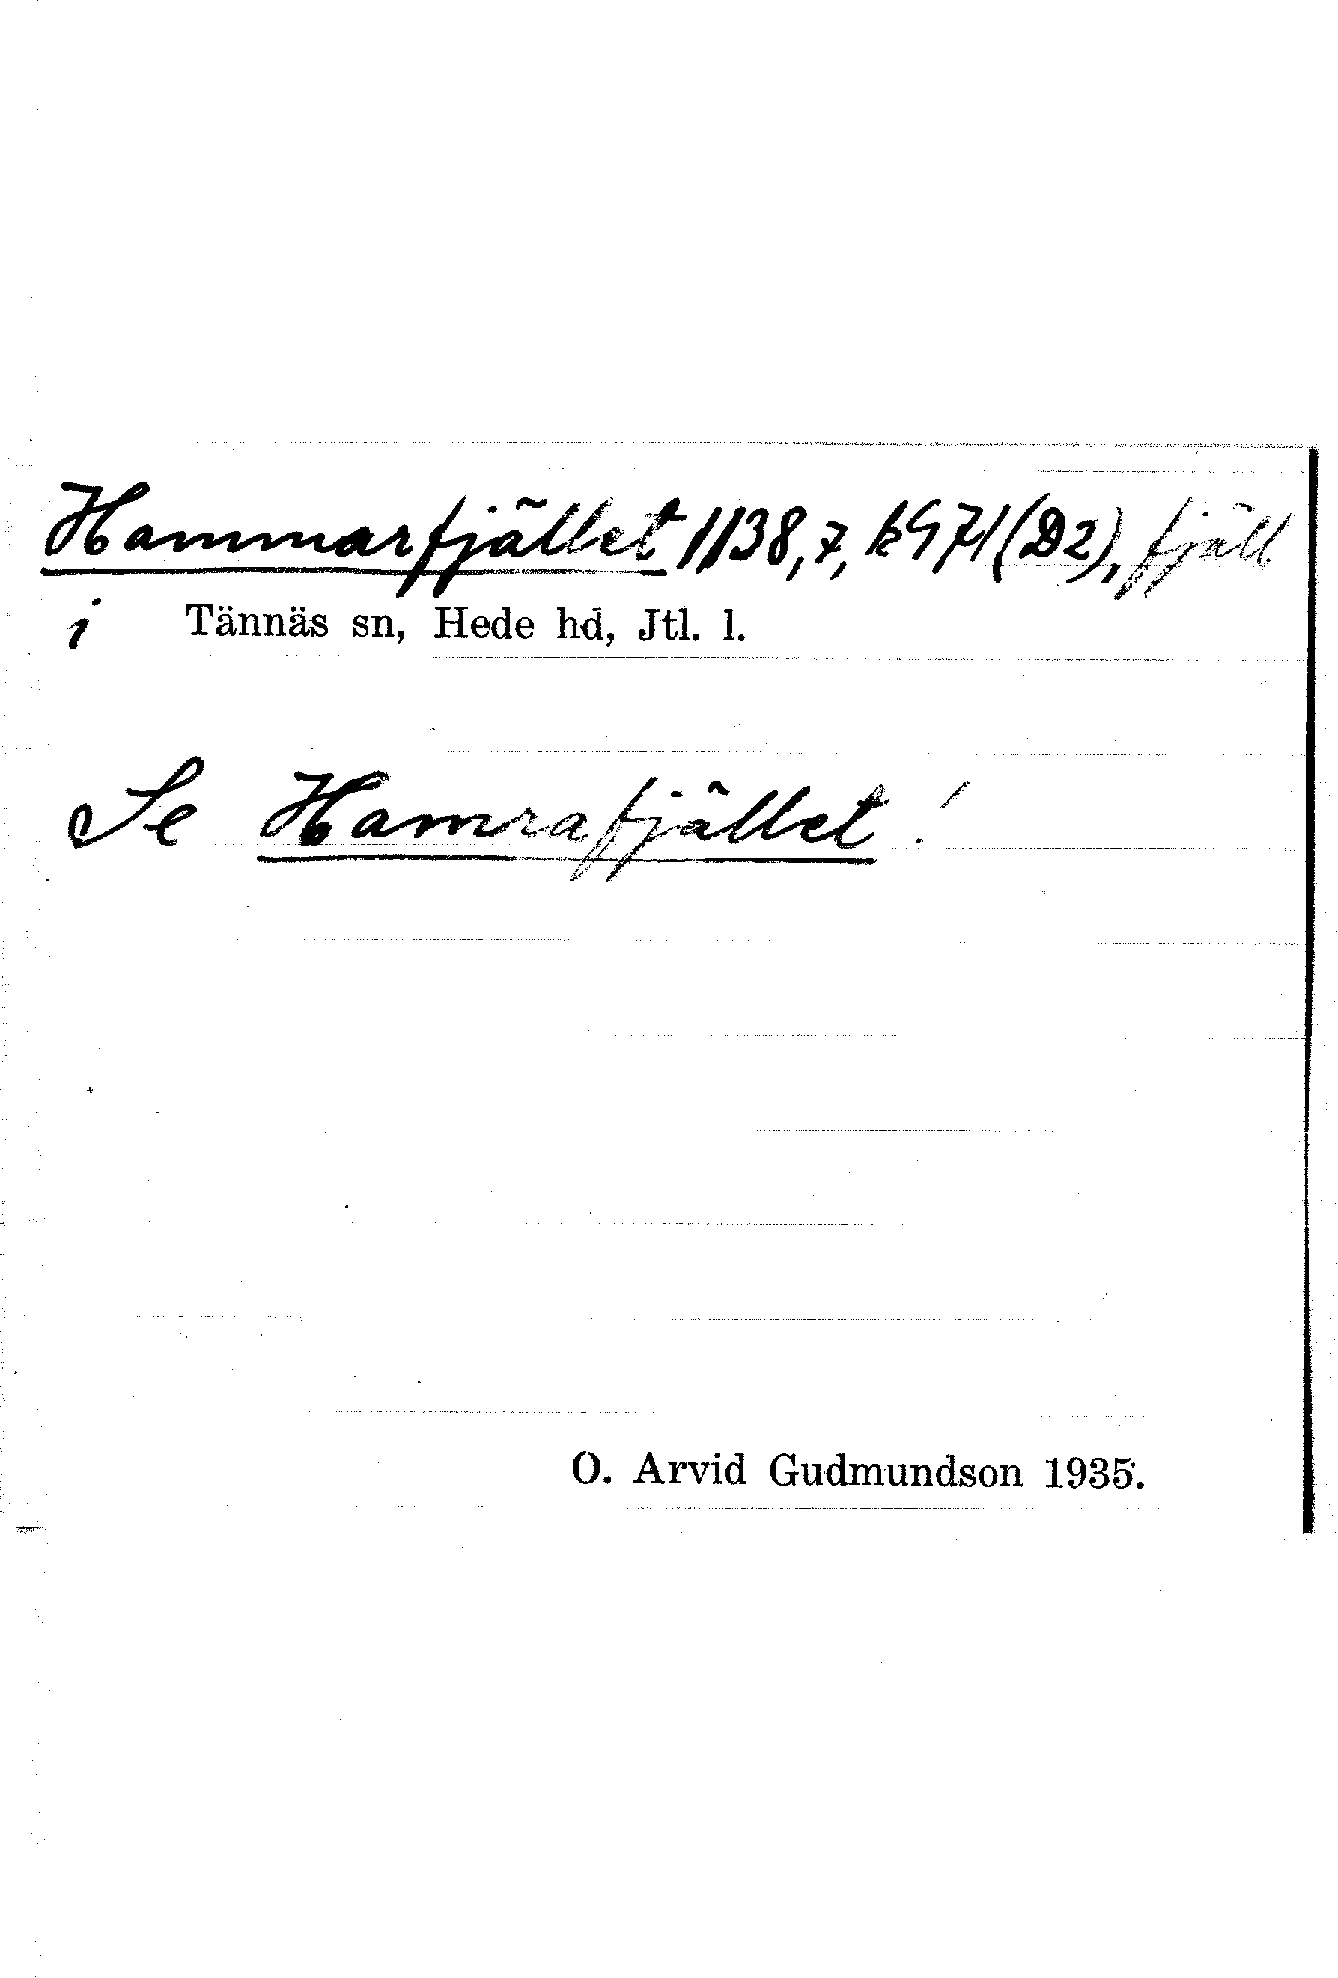 Hammarfjället 1138,7, k971(D2), fjäll
i Tännäs sn, Hede hd, Jtl. l.
Se Hamrafjället!
O. Arvid Gudmundson 1935.